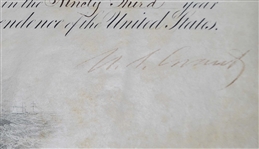 in the Ninety Third year
endence of the United States.